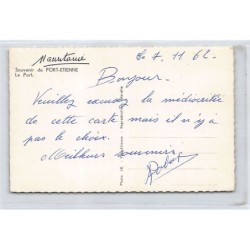 Mauritanie
Souvenir de PORT-ETIENNE
Le Port.
Le 7.11 62
Bonjour.
Veuillez excusez la médiocritée
de cette carte mais il n'y a
pas le choix.
Meilleurs souvenirs